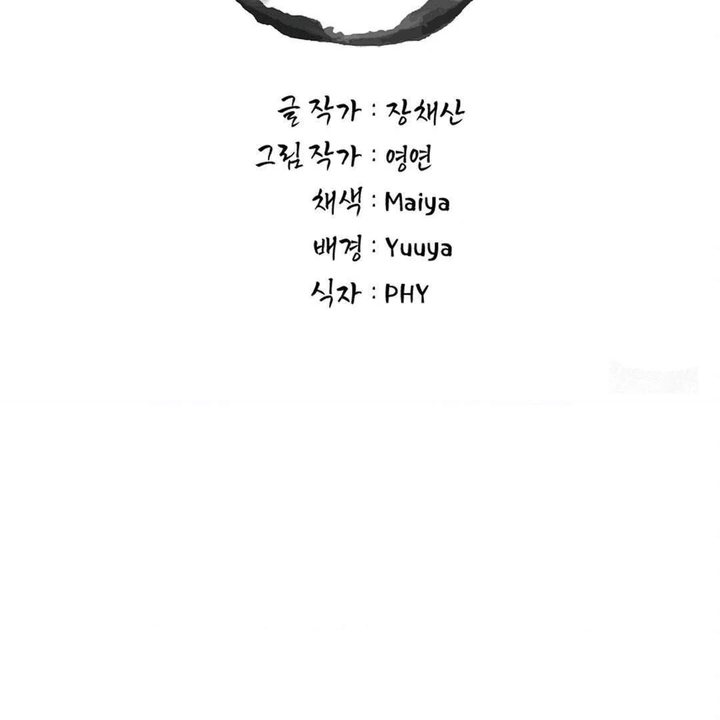 글 작가 : 장채산
그림 작가 : 영연
채색 : Maiya
배경 : Yuuya
식자 : PHY